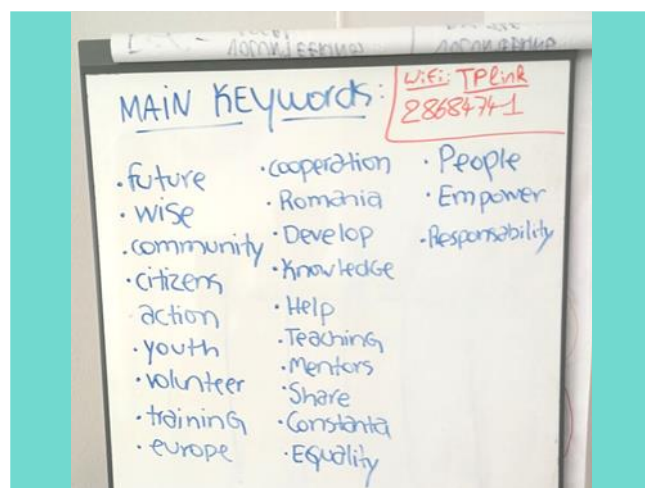 MAIN KEYWORDS:
WiFi: TPLink
28684741
• future
• wise
• community
• citizens
action
• youth
• volunteer
• training
• europe
• cooperation
• Romania
• Develop
• Knowledge
• Help
• Teaching
• Mentors
• Share
• Constanta
• Equality
• People
• Empower
• Responsability